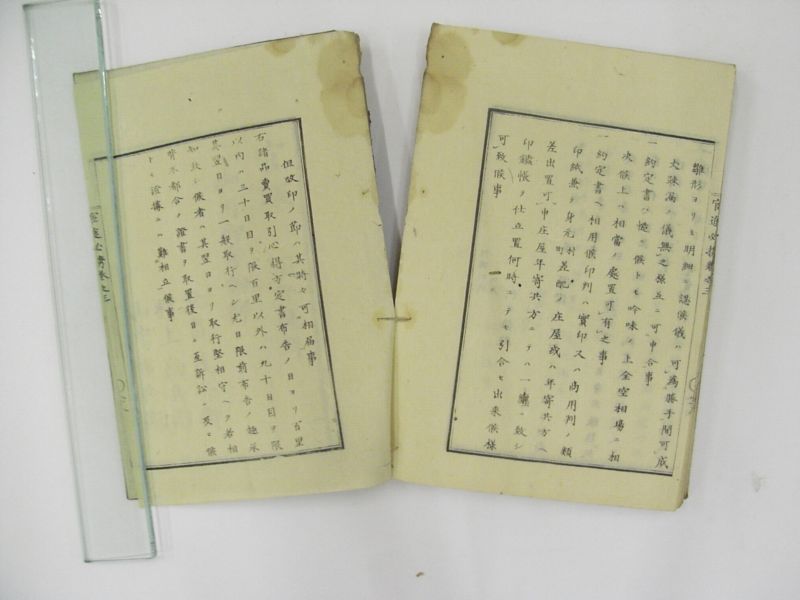 雛形ヨリモ明細ニ認候儀ハ可為勝手間可成
丈疎漏ノ儀無之様互ニ可申合事
一約定書ハ候トモ吟味ノ上金空相場ニ相
次候上ハ相當ノ處置可有之事
一約定書ヘ相用候印判ハ實印又ハ商用判ノ類
印紙兼テ身元村町差配ノ庄屋或ハ年寄共方ヘ
差出置可申庄屋年寄共方ニテハ一纏ニ致シ
印鑑帳ヲ仕立置何時ニテモ引合セ出来候様
可致候事
但改印ノ節ハ其時々可相届事
右諸品賣買取引心得方定書布告ノ日ヨリ百里
以内ハ三十日目ヲ限百里以外ハ九十日目ヲ限
其翌日ヨリ一般取行ヘシ尤日限前布告ノ趣承
知致シ候者ハ其翌日ヨリ取行堅相守ヘク若相
背不都合ノ證書ヲ取置後日ニ至訴訟ニ及ヒ候
トモ證據ニハ難相立候事